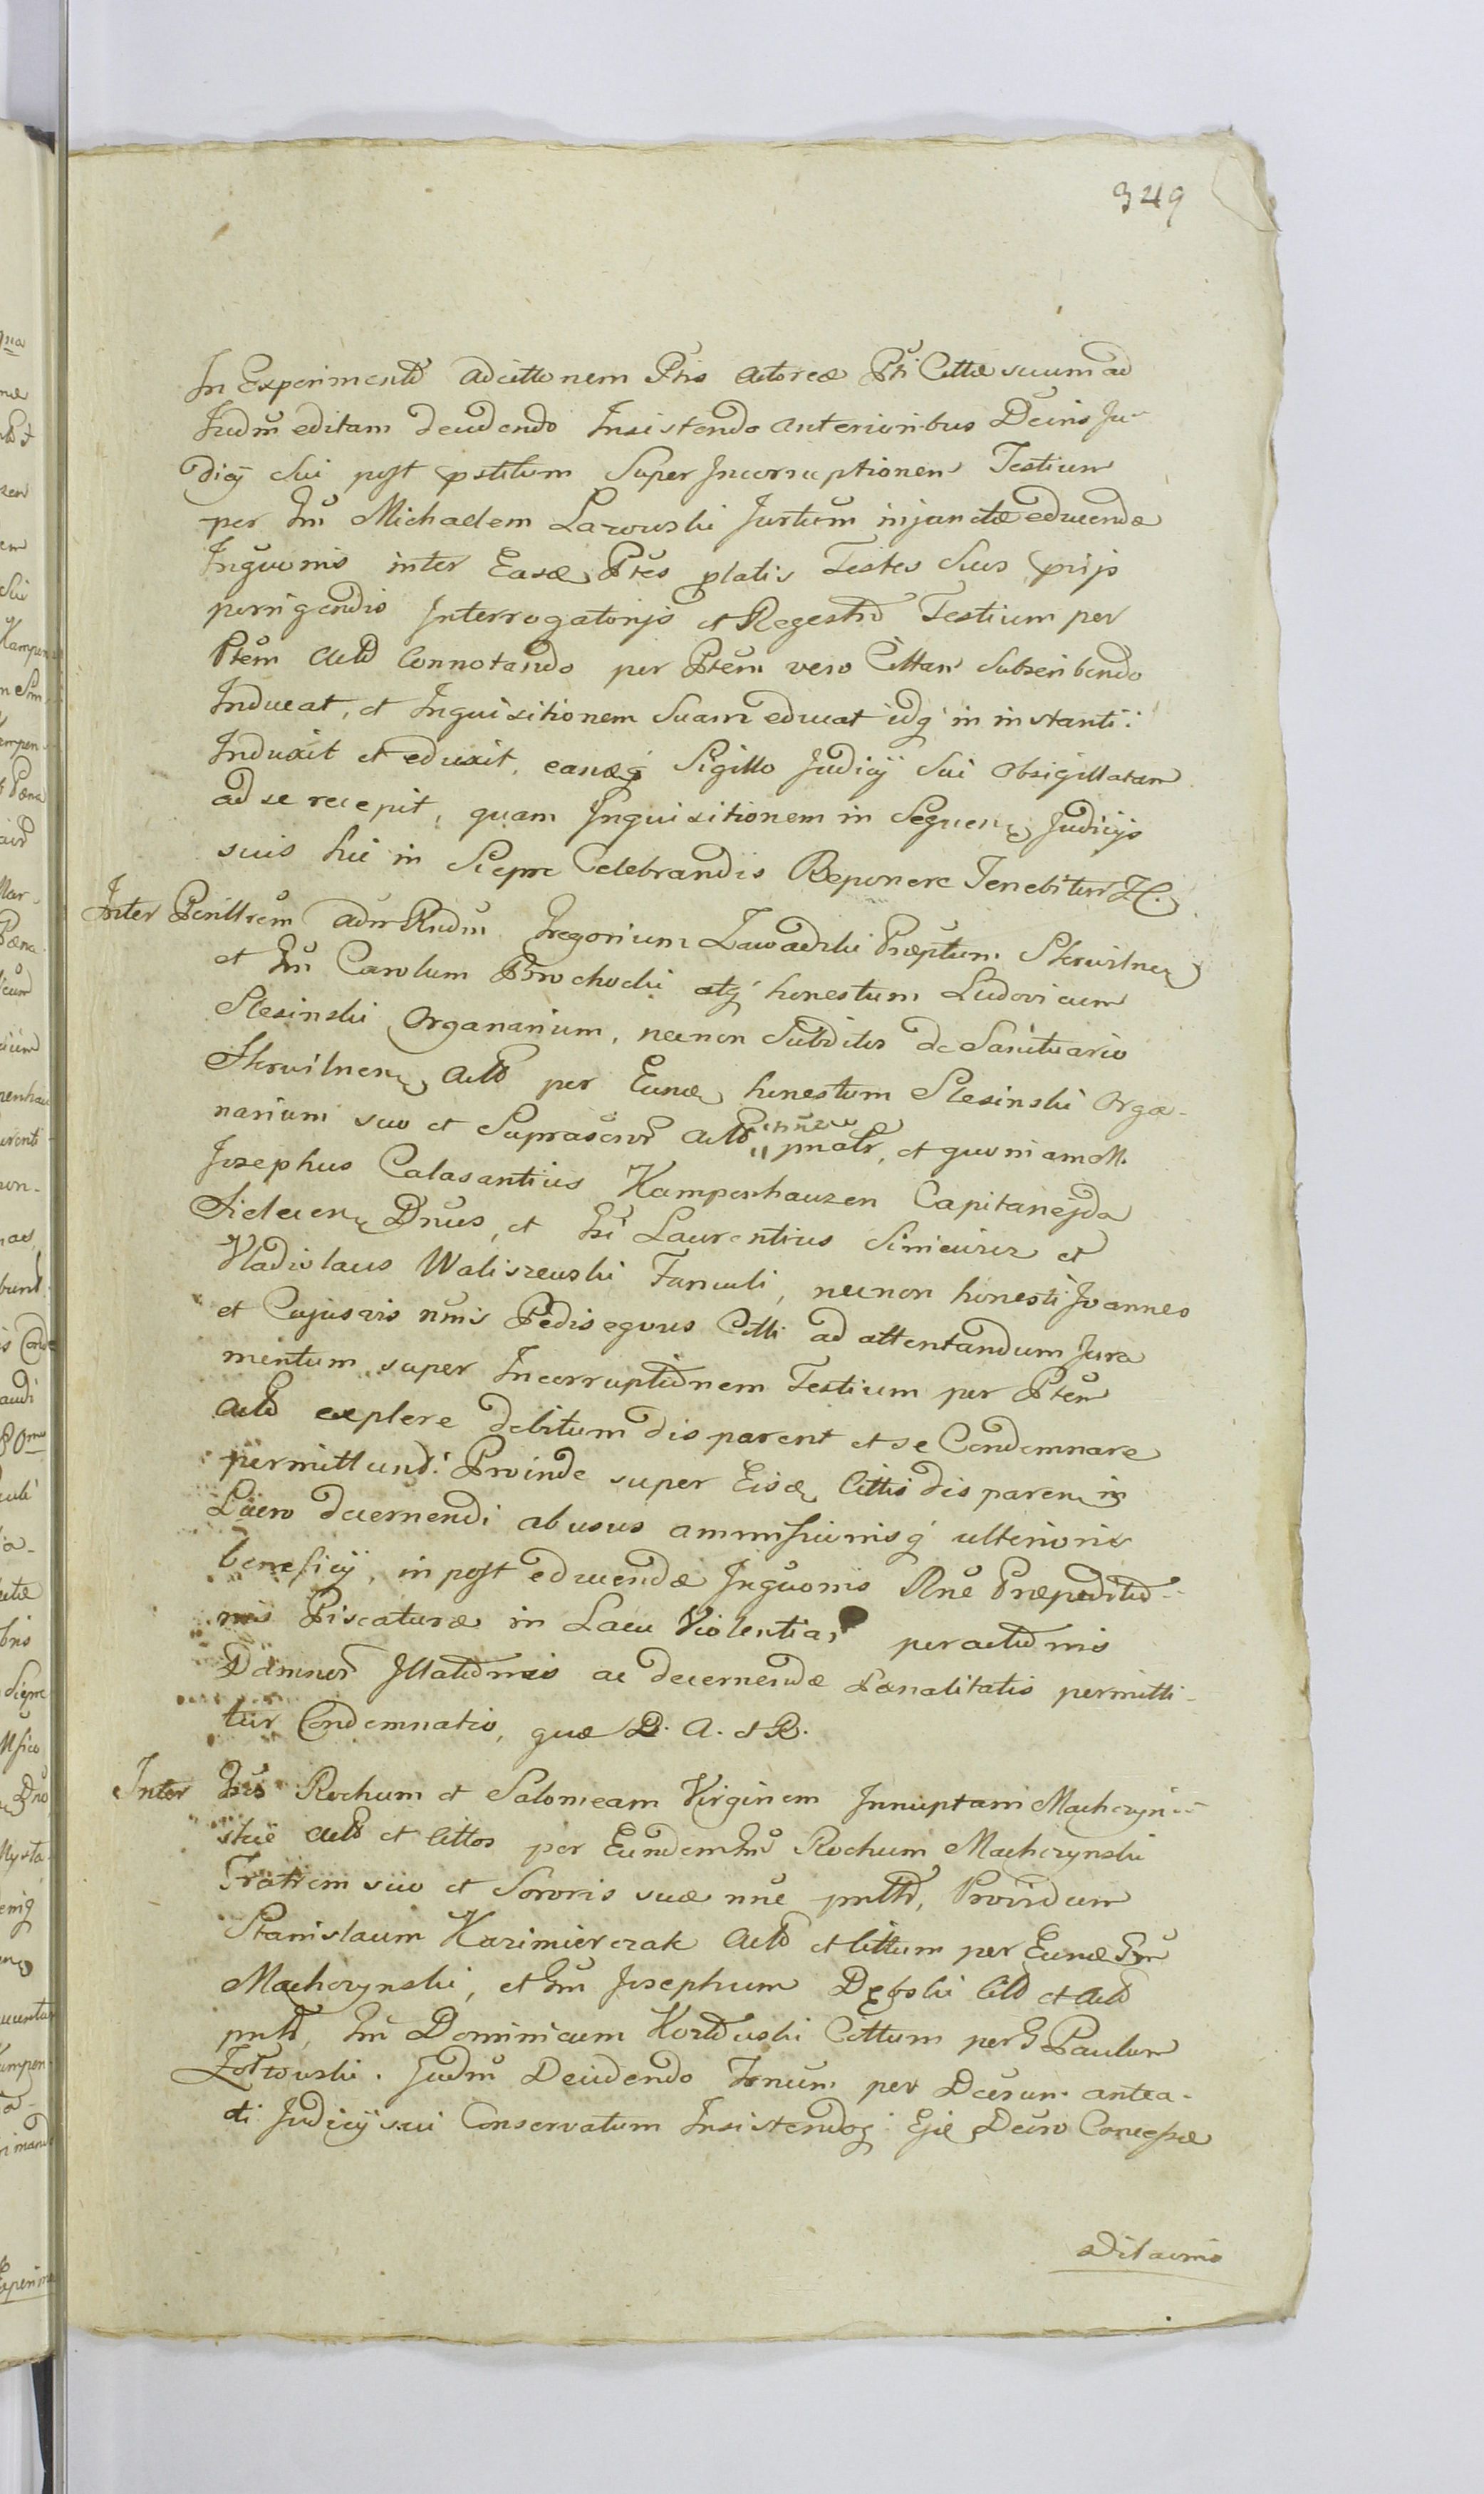 349
In Experimento ad cittonem Ptis Actoreæ Pti Cittæ suum ad
Judm editam decidendo Insistendo anterioribus Decris Ju-
dicÿ Sui post pstitum Super Incorruptionem Testium
per Gm Michaelem Lazowski Jurtum injunctæ educendæ
Inquonis inter Easd Ptes platis Testes Suos
porrigendis Interrogatorijs et Regestro Testium per
Ptem Acto Connotando per Ptem vero Cittam Subscribendo
Inducat, et Inquisitionem Suam educat idq in instanti:
Induxit et eduxit, eandq Sigillo Judicÿ Sui obsigillatam
ad se recepit, quam Inquisitionem in Sequen Judicÿs
suis hic in Sieprc Celebrandis Reponere Tenebitur
Inter Perillrem adm Rndum Gregorium Zawadzki Præptum Skrwilnen
et Gm Carolum Brochocki atq honestum Ludovicum
Slesinski Organarium, necnon Subditos de Sanctuario
Skrwilnen Acto per Eund honestum Slesinski Orga-
narium suo et Suprascror Acto nne pnalr, et quoniam M.
Josephus Calasantius Kampenhauzen Capitanejda
Sieluen Dnus, et Gsi Laurentius et
Vladislaus Waliszewski Famuli, necnon honesti Joannes
et Cujusvis nmis Pedisequus Citti ad attentandum Jura
mentum super Incorruptionem Testium per Ptem
Acto explere debitum disparent et se Condemnare
permittund: Proinde super Eisd Cittis disparen in
Lucro decernendi abusus ammissionisq ulterioris
beneficÿ, in post educendæ Inquonis Rne Præpeditio-
nis Piscaturæ in Lacu Violentiar peractionis
Damnor Illationis ac decernendæ Pænalitatis permitti-
tur Condemnatio, quæ D. A. et R.
Inter Gsos Rochum et Salomeam Virginem Innuptam Machczyn-
skie Acto et Cittos per Eundem Gm Rochum Machczynski
Fratrem suo et Sororis suæ nne pntto, Providum
Stanislaum Kazimierczak Acto et Cittum per Eund Gm
Machczynski, et Gm Josephum Dębski Citto et Acto
pntto, Gm Dominicum Cittum per G Paulum
Zołtowski. Judm Decidendo Trnum per Dcrum antea-
cti Judicÿ sui Conservatum Insistendoq Ejd Decro Concessæ
Dilaonis